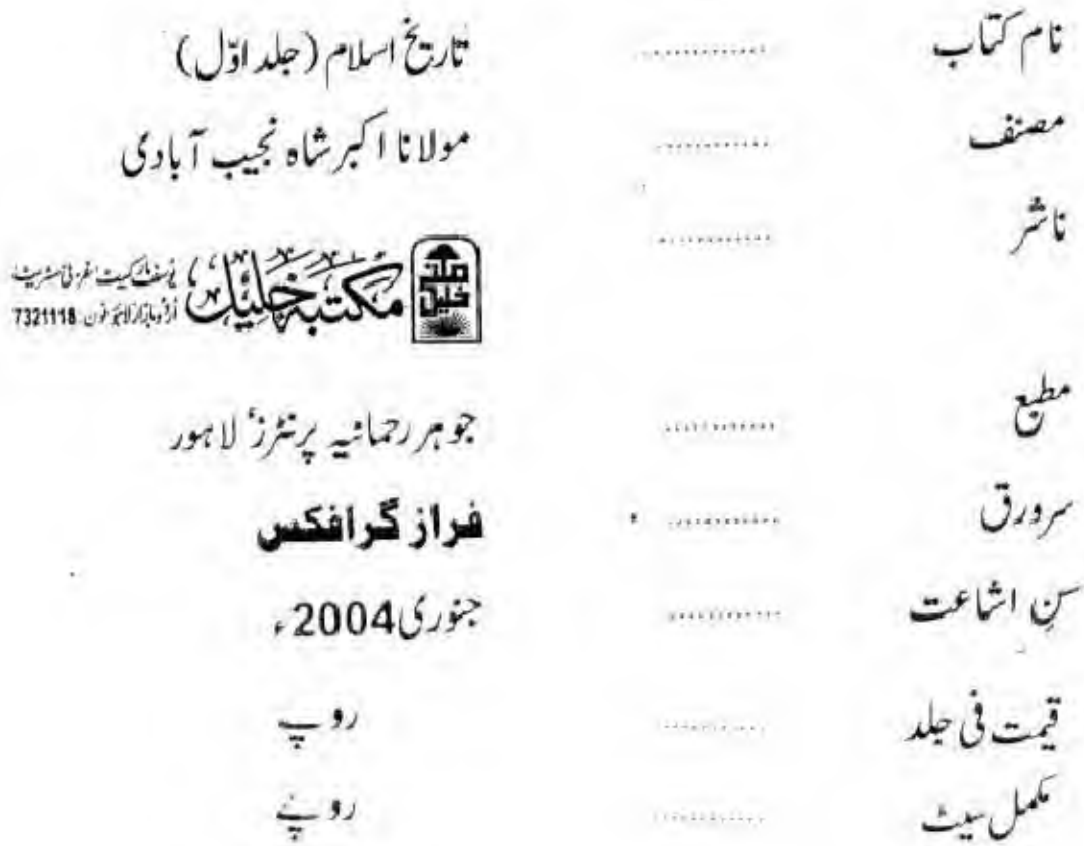 نام کتاب ............ تاریخ اسلام (جلد اوّل)
مصنف ............ مولانا اکبر شاہ نجیب آبادی
ناشر ............
مکتبہ خلیل
مکتبہ خلیل یوسف مارکیٹ غزنی سٹریٹ
اُردو بازار لاہور فون 7321118
مطبع ............ جوہر رحمانیہ پرنٹرز' لاہور
سرورق ............ فراز گرافکس
سنِ اشاعت ............ جنوری 2004ء
قیمت فی جلد ............ روپے
مکمل سیٹ ............ روپے